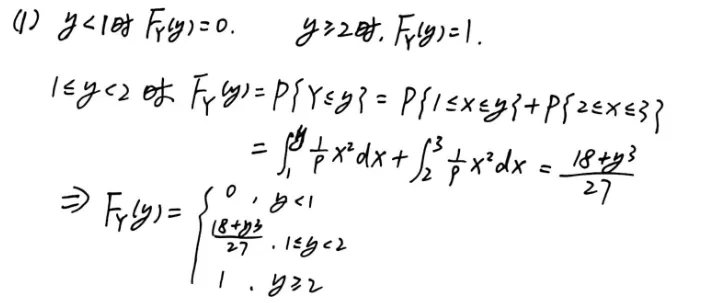 (1) y<1时 F_Y(y)=0. y≥2时, F_Y(y)=1.
1≤y<2 时 F_Y(y)=P{Y≤y}=P{1≤x≤y}+P{2≤x≤3}
=∫_1^y 1/9 x²dx+∫_2^3 1/9 x²dx = (18+y³)/27
⇒ F_Y(y)={ 0, y<1
(18+y³)/27, 1≤y<2
1, y≥2